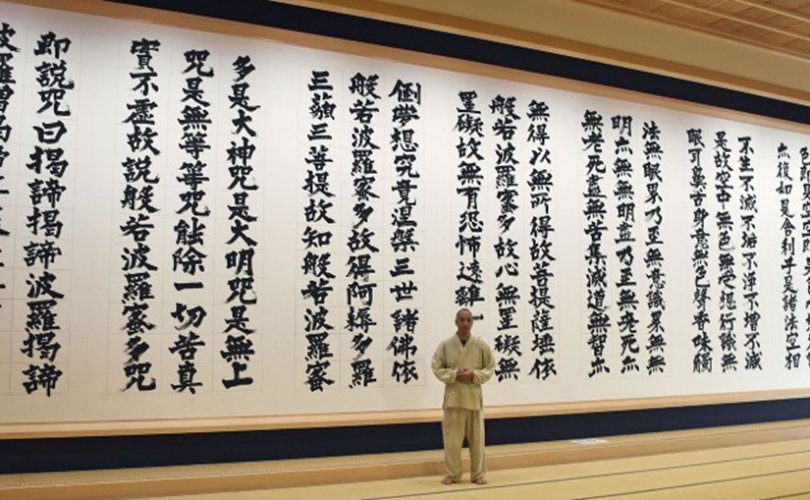 亦復如是舍利子是諸法空相
不生不滅不垢不淨不增不減
是故空中無色無受想行識無
眼耳鼻舌身意無色聲香味觸
法無眼界乃至無意識界無無
明亦無無明盡乃至無老死亦
無老死盡無苦集滅道無智亦
無得以無所得故菩提薩埵依
般若波羅蜜多故心無罣礙無
罣礙故無有恐怖遠離一
倒夢想究竟涅槃三世諸佛依
般若波羅蜜多故得阿耨多羅
三藐三菩提故知般若波羅蜜
多是大神咒是大明咒是無上
咒是無等等咒能除一切苦真
實不虛故說般若波羅蜜多咒
即說咒曰揭諦揭諦波羅揭諦